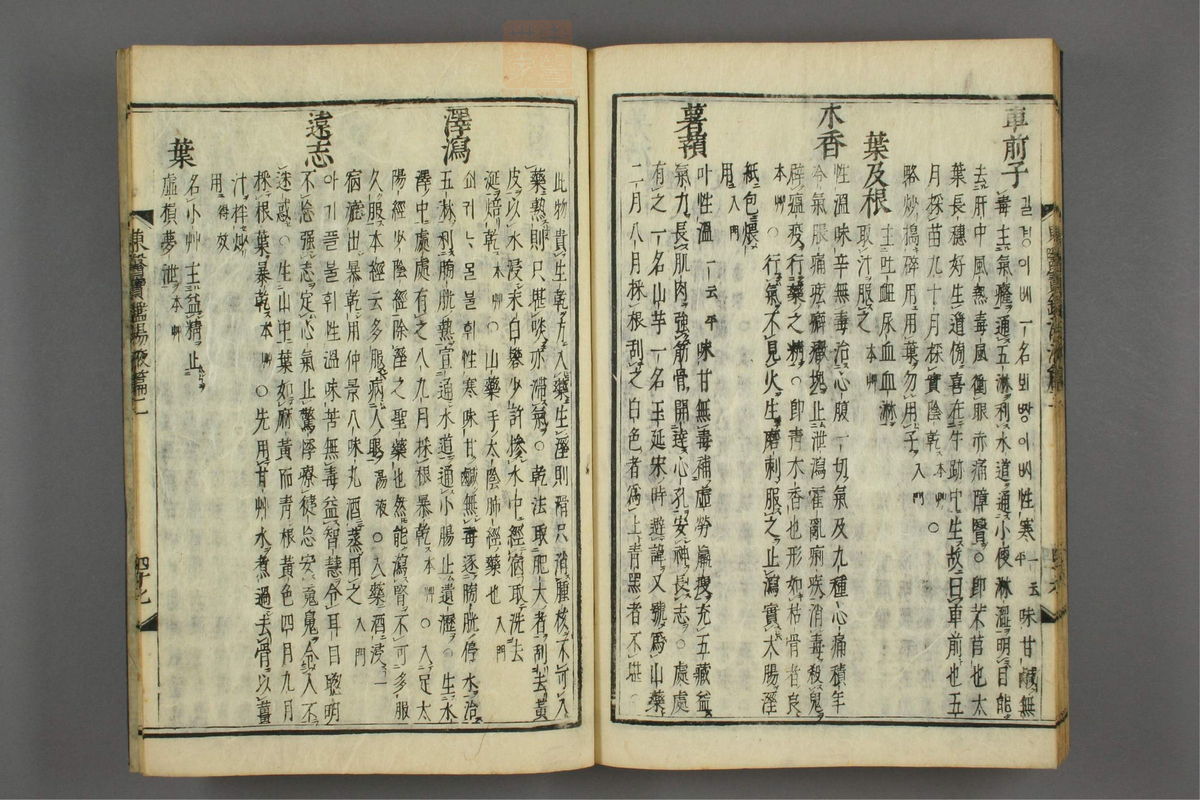 車前子
길경이ᄡᅵ一名뵈ᄧᅡᆼ이ᄡᅵ性寒一云平味甘鹹無
毒主氣癃通五淋利水道通小便淋澁明目能
去肝中風熱毒風衝眼赤痛障瞖○卽芣苢也大
葉長穗好生道傍喜在牛跡中生故曰車前也五
月採苗九十月採實陰乾本艸○
略炒搗碎用用葉勿用子入門
葉及根
主吐衄尿血血淋
取汁服之本艸
木香
性溫味辛無毒治心腹一切氣及九種心痛積年
冷氣脹痛痃癖癥塊止泄瀉霍亂痢疾消毒殺鬼
辟瘟疫行藥之精○卽靑木香也形如枯骨者良
本艸○行氣不見火生磨刺服之止瀉實大腸濕
紙包煨
用入門
薯蕷
마性溫一云平味甘無毒補虛勞羸瘦充五藏益
氣力長肌肉強筋骨開達心孔安神長志○處處
有之一名山芋一名玉延宋時避諱又號爲山藥
二月八月採根刮之白色者爲上靑黑者不堪○
此物貴生乾方入藥生濕則滑只消腫核不可入
藥熟則只堪啖亦滯氣○乾法取肥大者刮去黃
皮以水浸末白礬少許摻水中經宿取洗去
涎焙乾本艸○山藥手太陰肺經藥也入門
澤瀉
쇠귀ᄂᆞ몰불휘性寒味甘鹹無毒逐膀胱停水治
五淋利膀胱熱宣通水道通小腸止遺瀝○生水
澤中處處有之八九月採根暴乾本艸○入足太
陽經少陰經除濕之聖藥也然能瀉腎不可多服
久服本經云多服病人眼湯液○入藥酒浸一
宿漉出暴乾用仲景八味丸酒蒸用之入門
遠志
아기플불휘性溫味苦無毒益智慧令耳目聰明
不忘强志定心氣止驚悸療健忘安魂魄令人不
迷惑○生山中葉如麻黃而靑根黃色四月九月
採根葉暴乾本艸○先用甘艸水煮過去骨以薑
汁拌炒
用得效
葉
名小艸主益精止
虛損夢泄本艸
東醫寶鑑湯液篇二
四十七